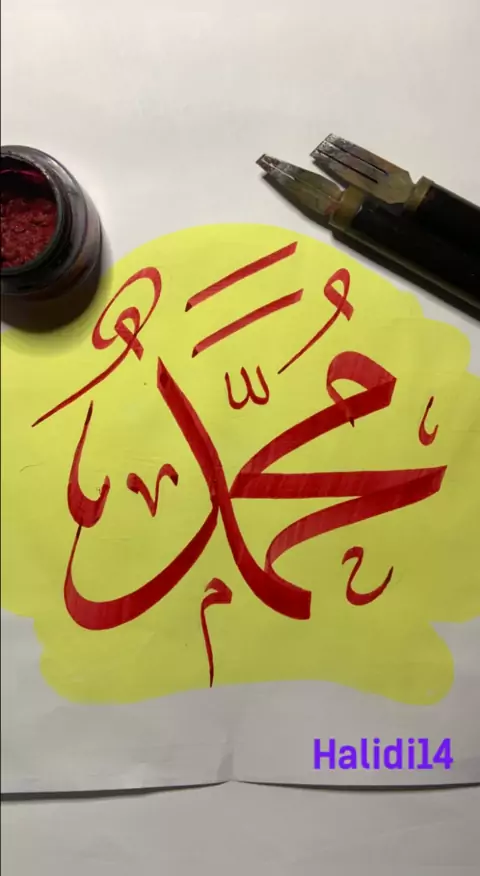 مُحَمَّدٌ
Halidi14